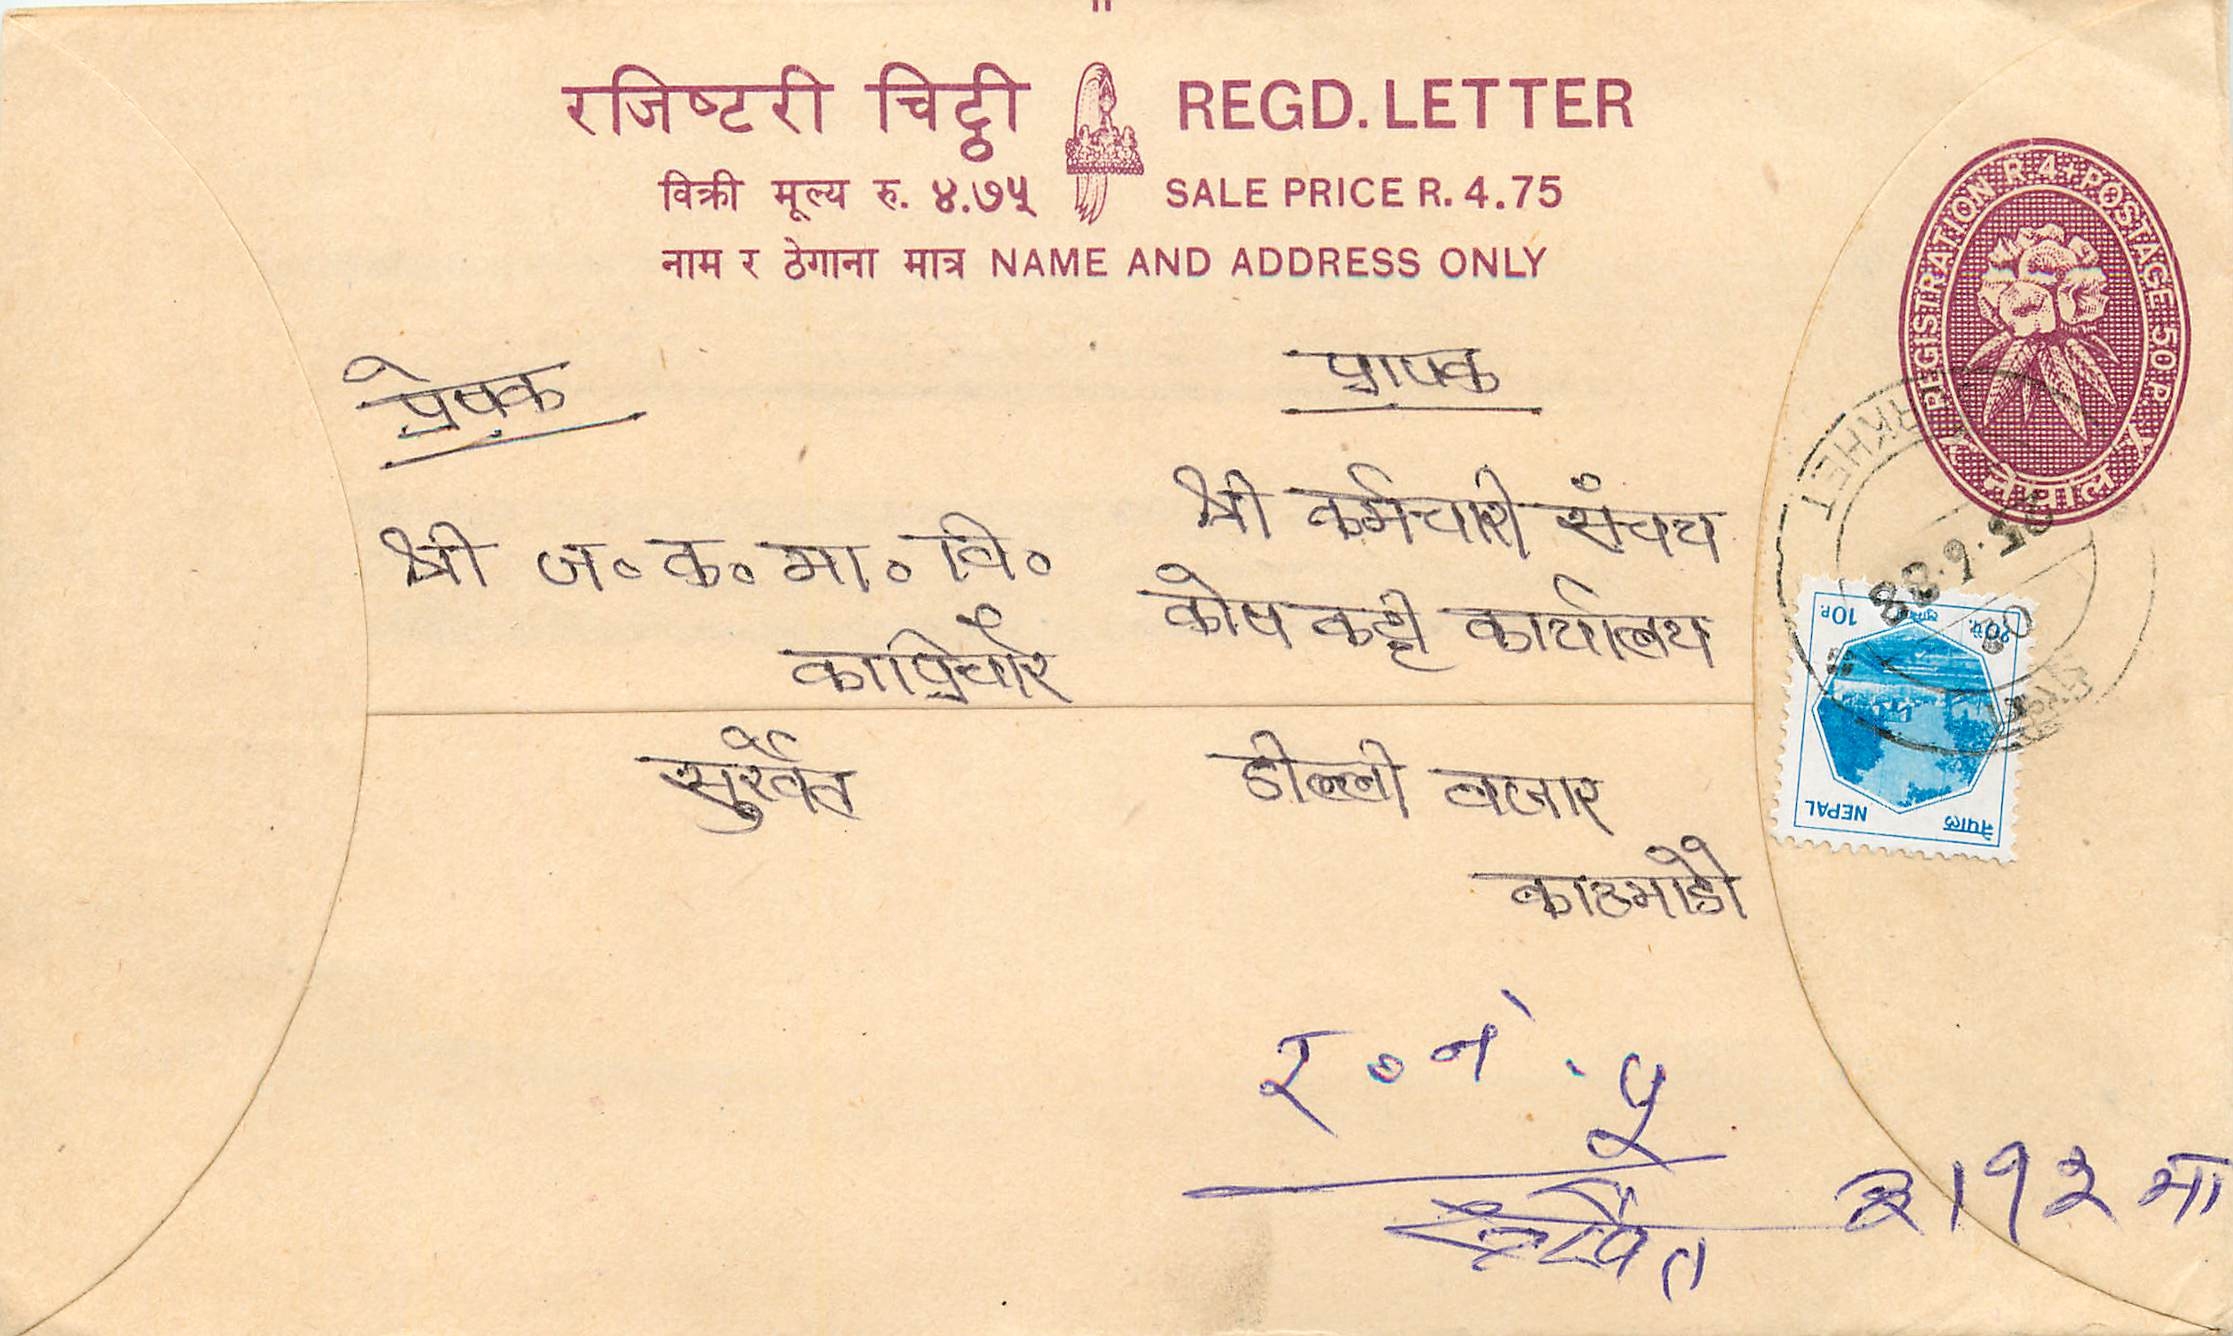 रजिष्टरी चिट्ठी REGD. LETTER
विक्री मूल्य रु. ४.७५ SALE PRICE R. 4.75
नाम र ठेगाना मात्र NAME AND ADDRESS ONLY
REGISTRATION R.4+POSTAGE 50 P.
नेपाल
प्रेषक
श्री ज॰ क॰ मा॰ वि॰
काप्रिचौर
सुर्खेत
प्रापक
श्री कर्मचारी संचय
कोष कट्टी कार्यालय
डील्ली बजार
काठमाडौ
RKHET
१०पै. 10P.
नेपाल NEPAL
र॰नं. ५
सुर्खेत